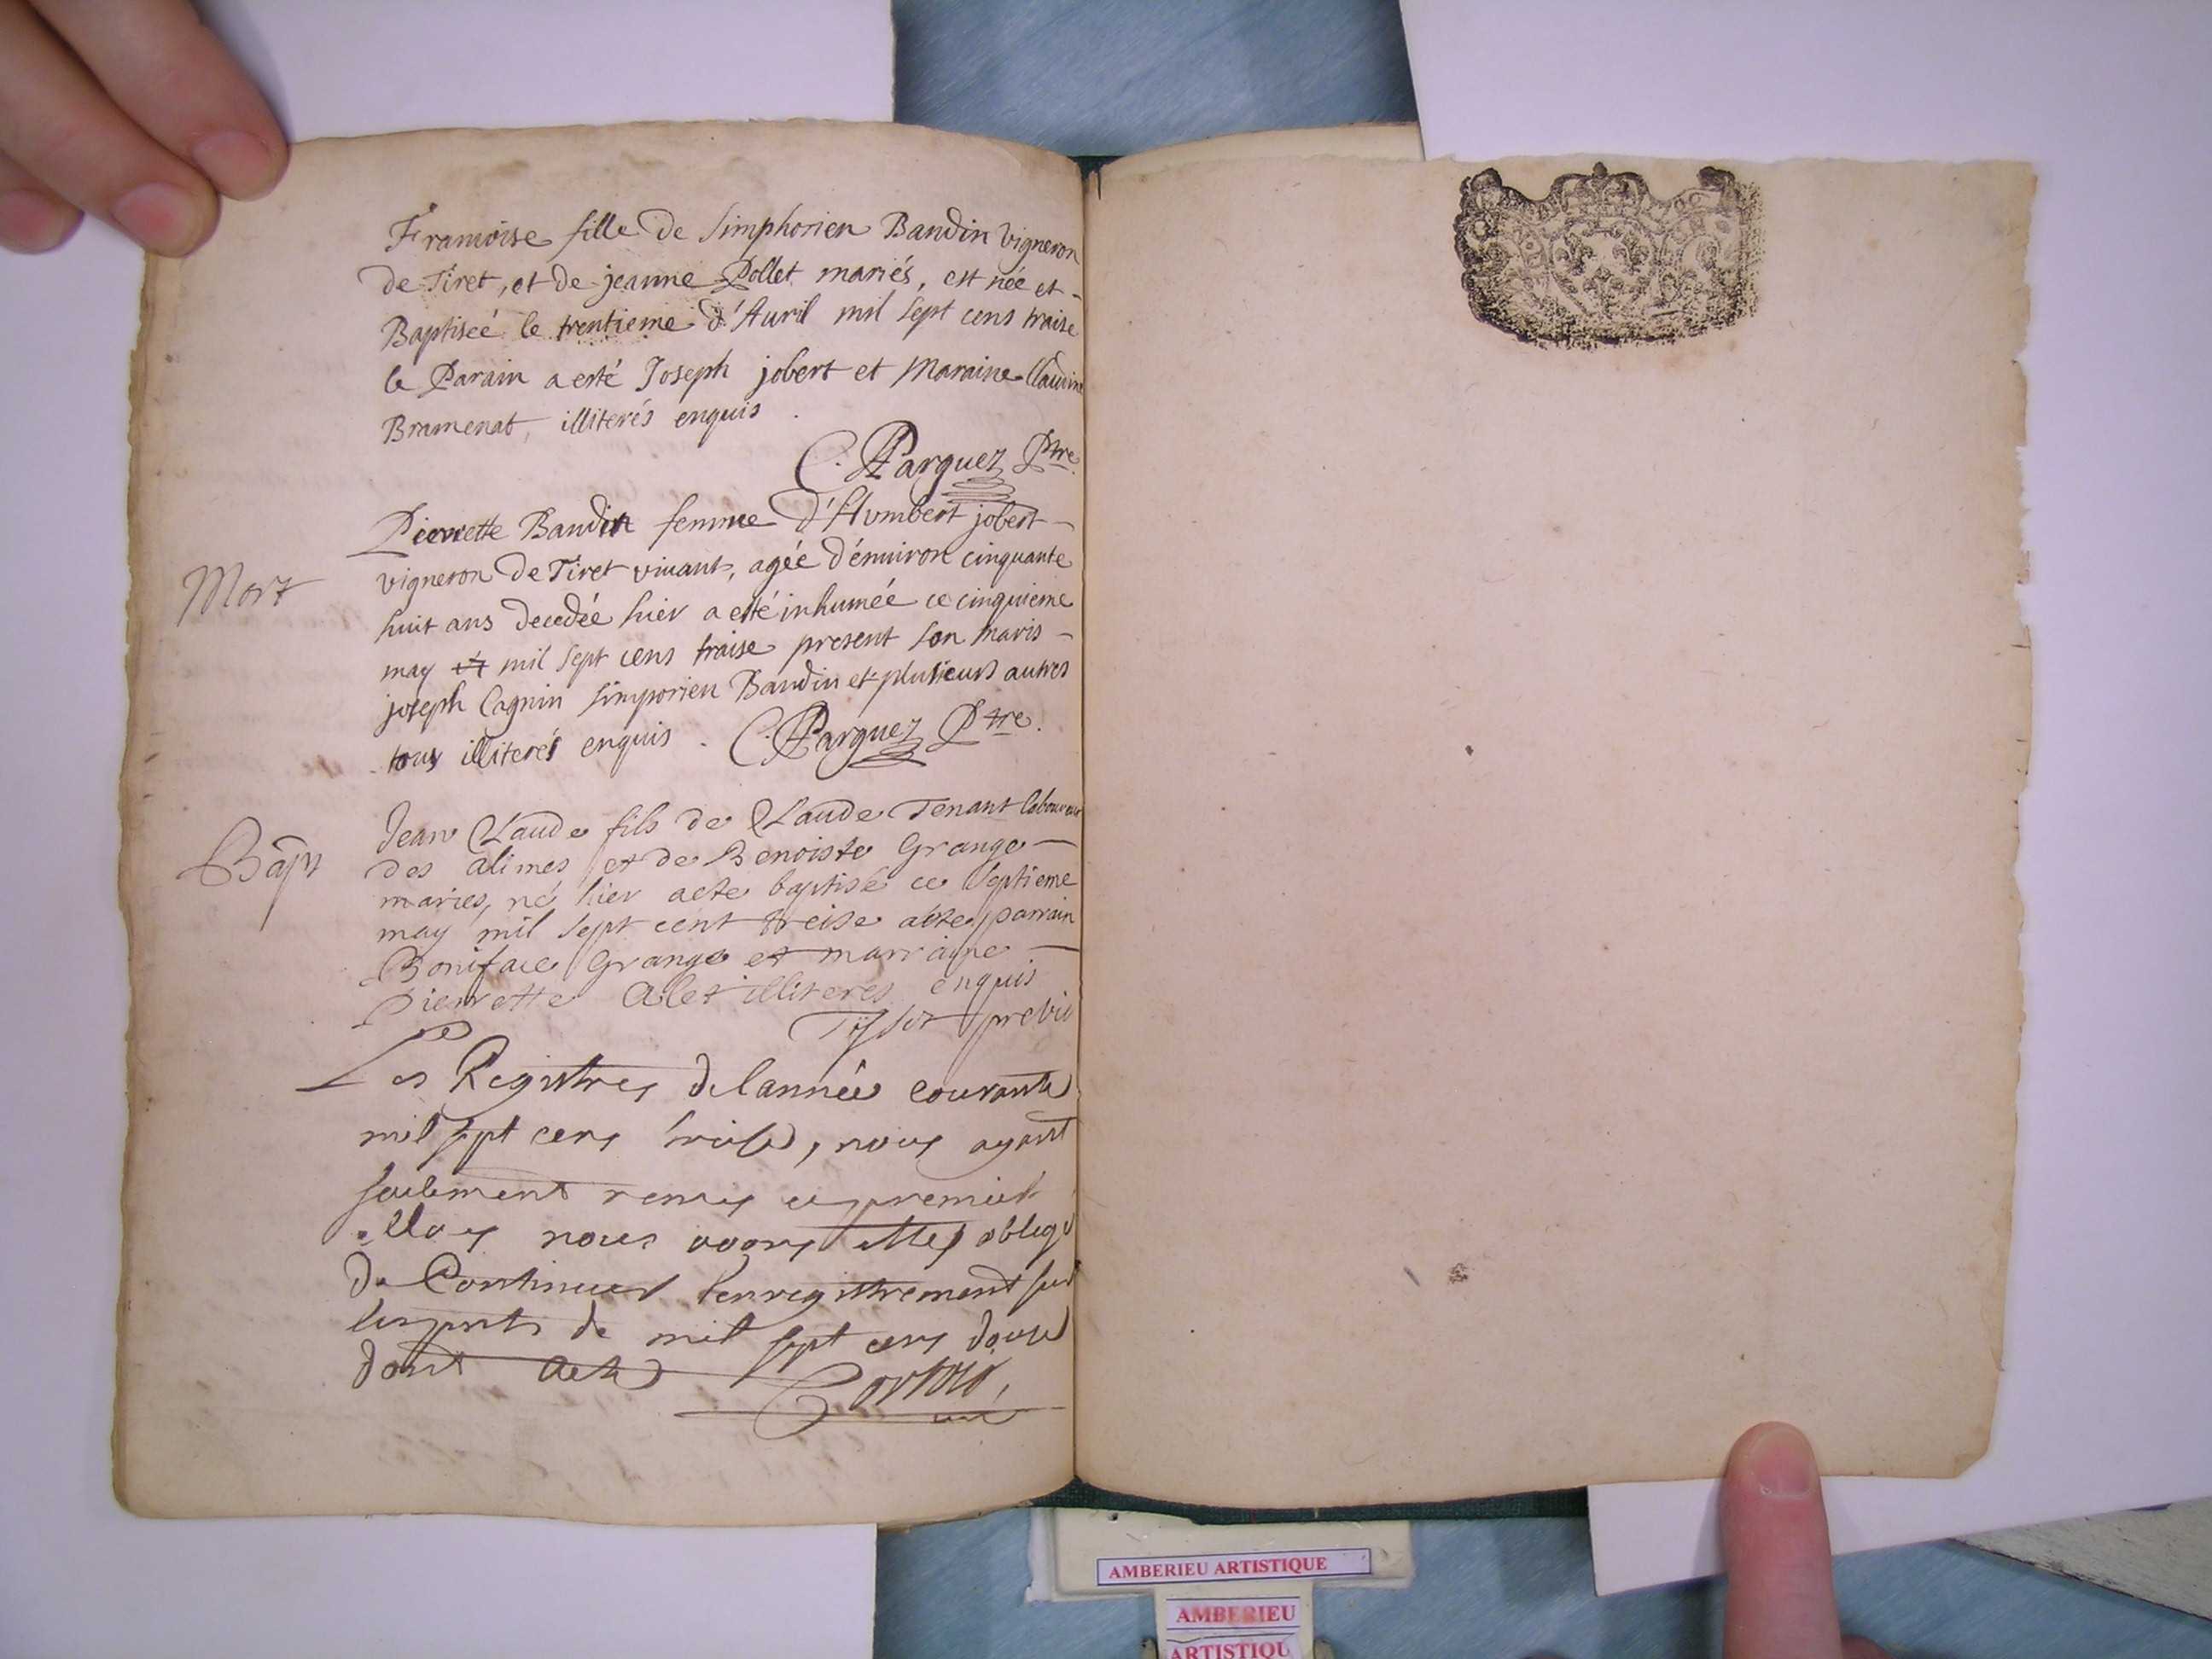 Francoise fille de Simphorien Baudin vigneron
de Tiret, et de jeanne Pollet mariés, est née et
Baptiseé le trentieme d'Auril mil sept cens traise
le Parain a esté Joseph jobert et Maraine Claudine
Bramenat, illiterés enquis.
C. Parguez Ptre.
Mort
Pierrette Baudin femme d'Humbert jobert
vigneron de Tiret viuant, agée d'énuiron cinquante
huit ans decedée hier a esté inhumée ce cinquieme
may mil sept cens traise present son maris
joseph Cagnin simporien Baudin et plusieurs autres
tous illiterés enquis. C. Parguez Ptre.
Bapt
Jean Claude fils de Claude Tenant laboureur
des alimes et de Benoiste Grange
mariés, né hier a eté baptisé ce septieme
may mil sept cent treise a ete parrain
Boniface Grange et marraine
Pierrette Alet illiteres enquis
Tissot
Les Registres de lannée courante
mil sept cens traise, nous ayant
seulement remis ce premier
May nous avons estté obligé
de Continuer lenregistrement sur
de mil sept cens douze
dont acte
curé
AMBERIEU ARTISTIQUE
AMBERIEU
ARTISTIQU